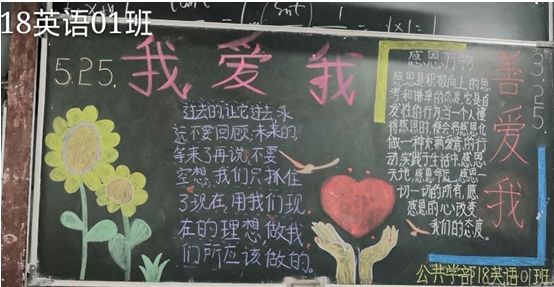 18英语01班
5.25.
我爱我
过去的让它过去,永
远不要回顾,未来的
等来了再说,不要
空想,我们只抓住
了现在,用我们现
在的理想,做我
们所应该做的。
感恩万物
感恩是积极向上的思
考和谦卑的态度,它是自
发性的行为,当一个人懂
得感恩时,便会将感恩化
做一种充满爱意的行
动,实践于生活中,感恩
天地,感恩命运,感恩一
切一切的所有,愿
感恩的心改变
我们的态度。
3.25.
善爱我
公共学部18英语01班